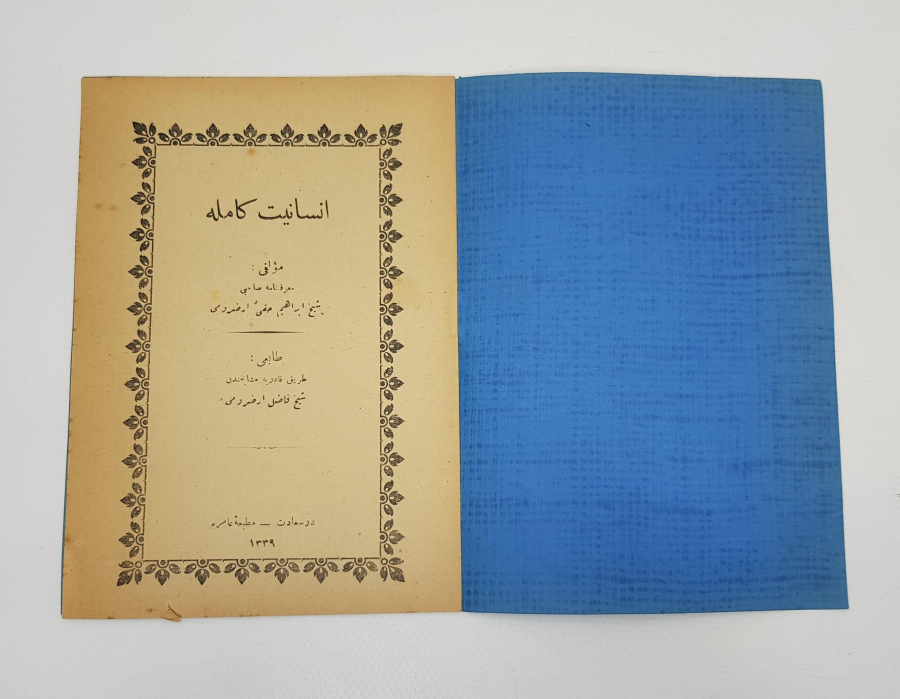 انسانیت كامله
مؤلفی :
معرفتنامه صاحبی
شیخ ابراهیم حقیٔ ارضرومی
طابعی :
طریق قادریه مشایخندن
شیخ فاضل ارضرومی
درسعادت — مطبعهٔ عامره
١٣٣٩